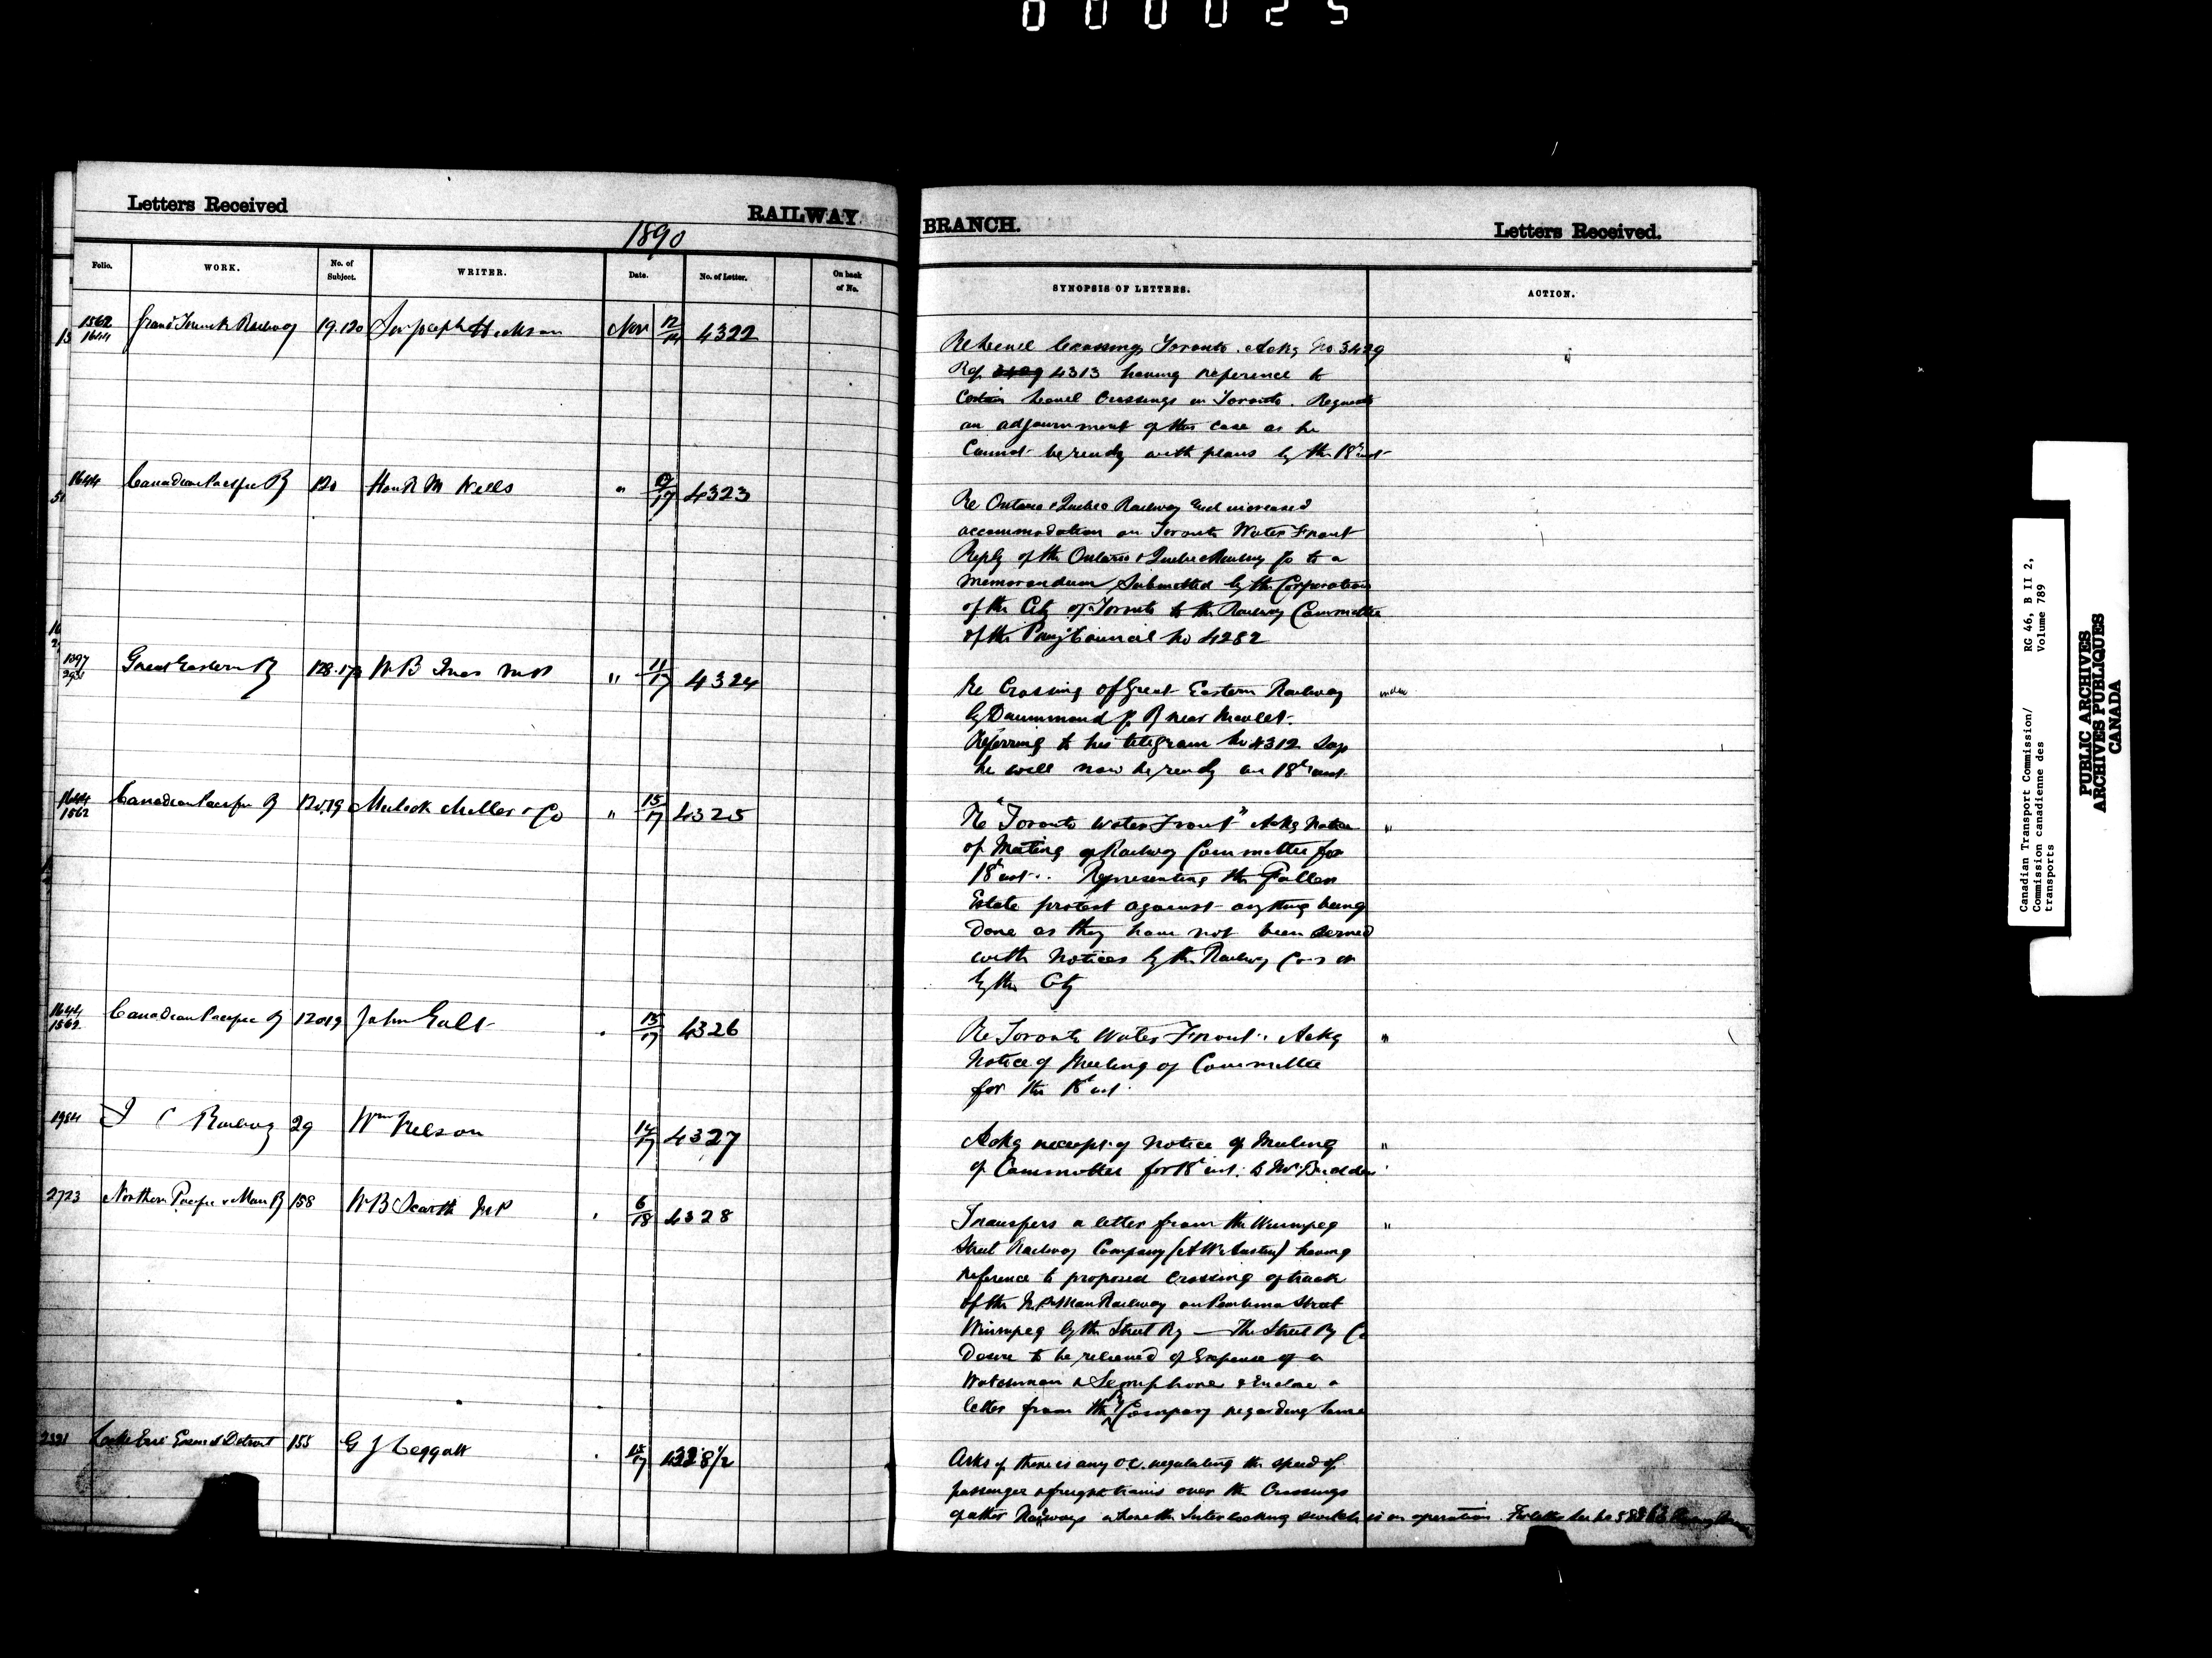 000025
Letters Received
RAILWAY
BRANCH.
Letters Received.
1890
Folio.
WORK.
No. of Subject.
WRITER.
Date.
No. of Letter.
On back of No.
SYNOPSIS OF LETTERS.
ACTION.
1562 1644 Grand Trunk Railway 19.120 Sir Joseph Hickson Nov 12/14 4322
Re Level Crossings Toronto. Ackg No. 3429
Ref. 4313 having reference to
Certain Level Crossings in Toronto. Requests
an adjournment of this case as he
Cannot be ready with plans by the 18th inst
1644 Canadian Pacific Ry 120 Hon R M Wells " /17 4323
Re Ontario & Quebec Railway and increased
accommodation on Toronto Water Front
Reply of the Ontario & Quebec Railway Co to a
Memorandum Submitted by the Corporation
of the City of Toronto to the Railway Committee
of the Privy Council No 4282
Great Eastern Ry W B Ives M P " 11/17 4324
Re Crossing of Great Eastern Railway
by Drummond Co. Ry near
Referring to his telegram No 4312 Says
he will now be ready on 18th inst.
1644 1562 Canadian Pacific Ry 120.19 Mulock Miller & Co " 15/17 4325
Re "Toronto Water Front" Ackg Notice "
of Meeting of Railway Committee for
18th inst. Representing the Fuller
Estate protest against anything being
done as they have not been served
with Notices by the Railway Co's or
by the City
1644 1562 Canadian Pacific Ry 120 19 John Galt " 15/17 4326
Re Toronto Water Front. Ackg "
Notice of Meeting of Committee
for the 18th inst.
1984 I C Railway 29 Wm Nelson 14/17 4327
Ackg receipt of Notice of Meeting "
of Committee for 18th inst.
2723 Northern Pacific & Man Ry 158 W B Scarth M P " 6/18 4328
Transfers a letter from the Winnipeg "
Street Railway Company (A W Austin) having
reference to proposed Crossing of track
of the N. P & Man Railway on Pembina Street
Winnipeg by the Street Ry — The Street Ry Co
Desire to be relieved of Expense of a
Watchman & Semaphore & Enclose a
letter from the Ry Company regarding same
Lake Erie Essex & Detroit 155 G J Leggatt " 15/17 4328 1/2
Asks if there is any O.C. regulating the speed of
passenger & freight trains over the Crossings
of other Railways where the Interlocking switch is in operation.
Canadian Transport Commission/
Commission canadienne des
transports
RG 46, B II 2,
Volume 789
PUBLIC ARCHIVES
ARCHIVES PUBLIQUES
CANADA